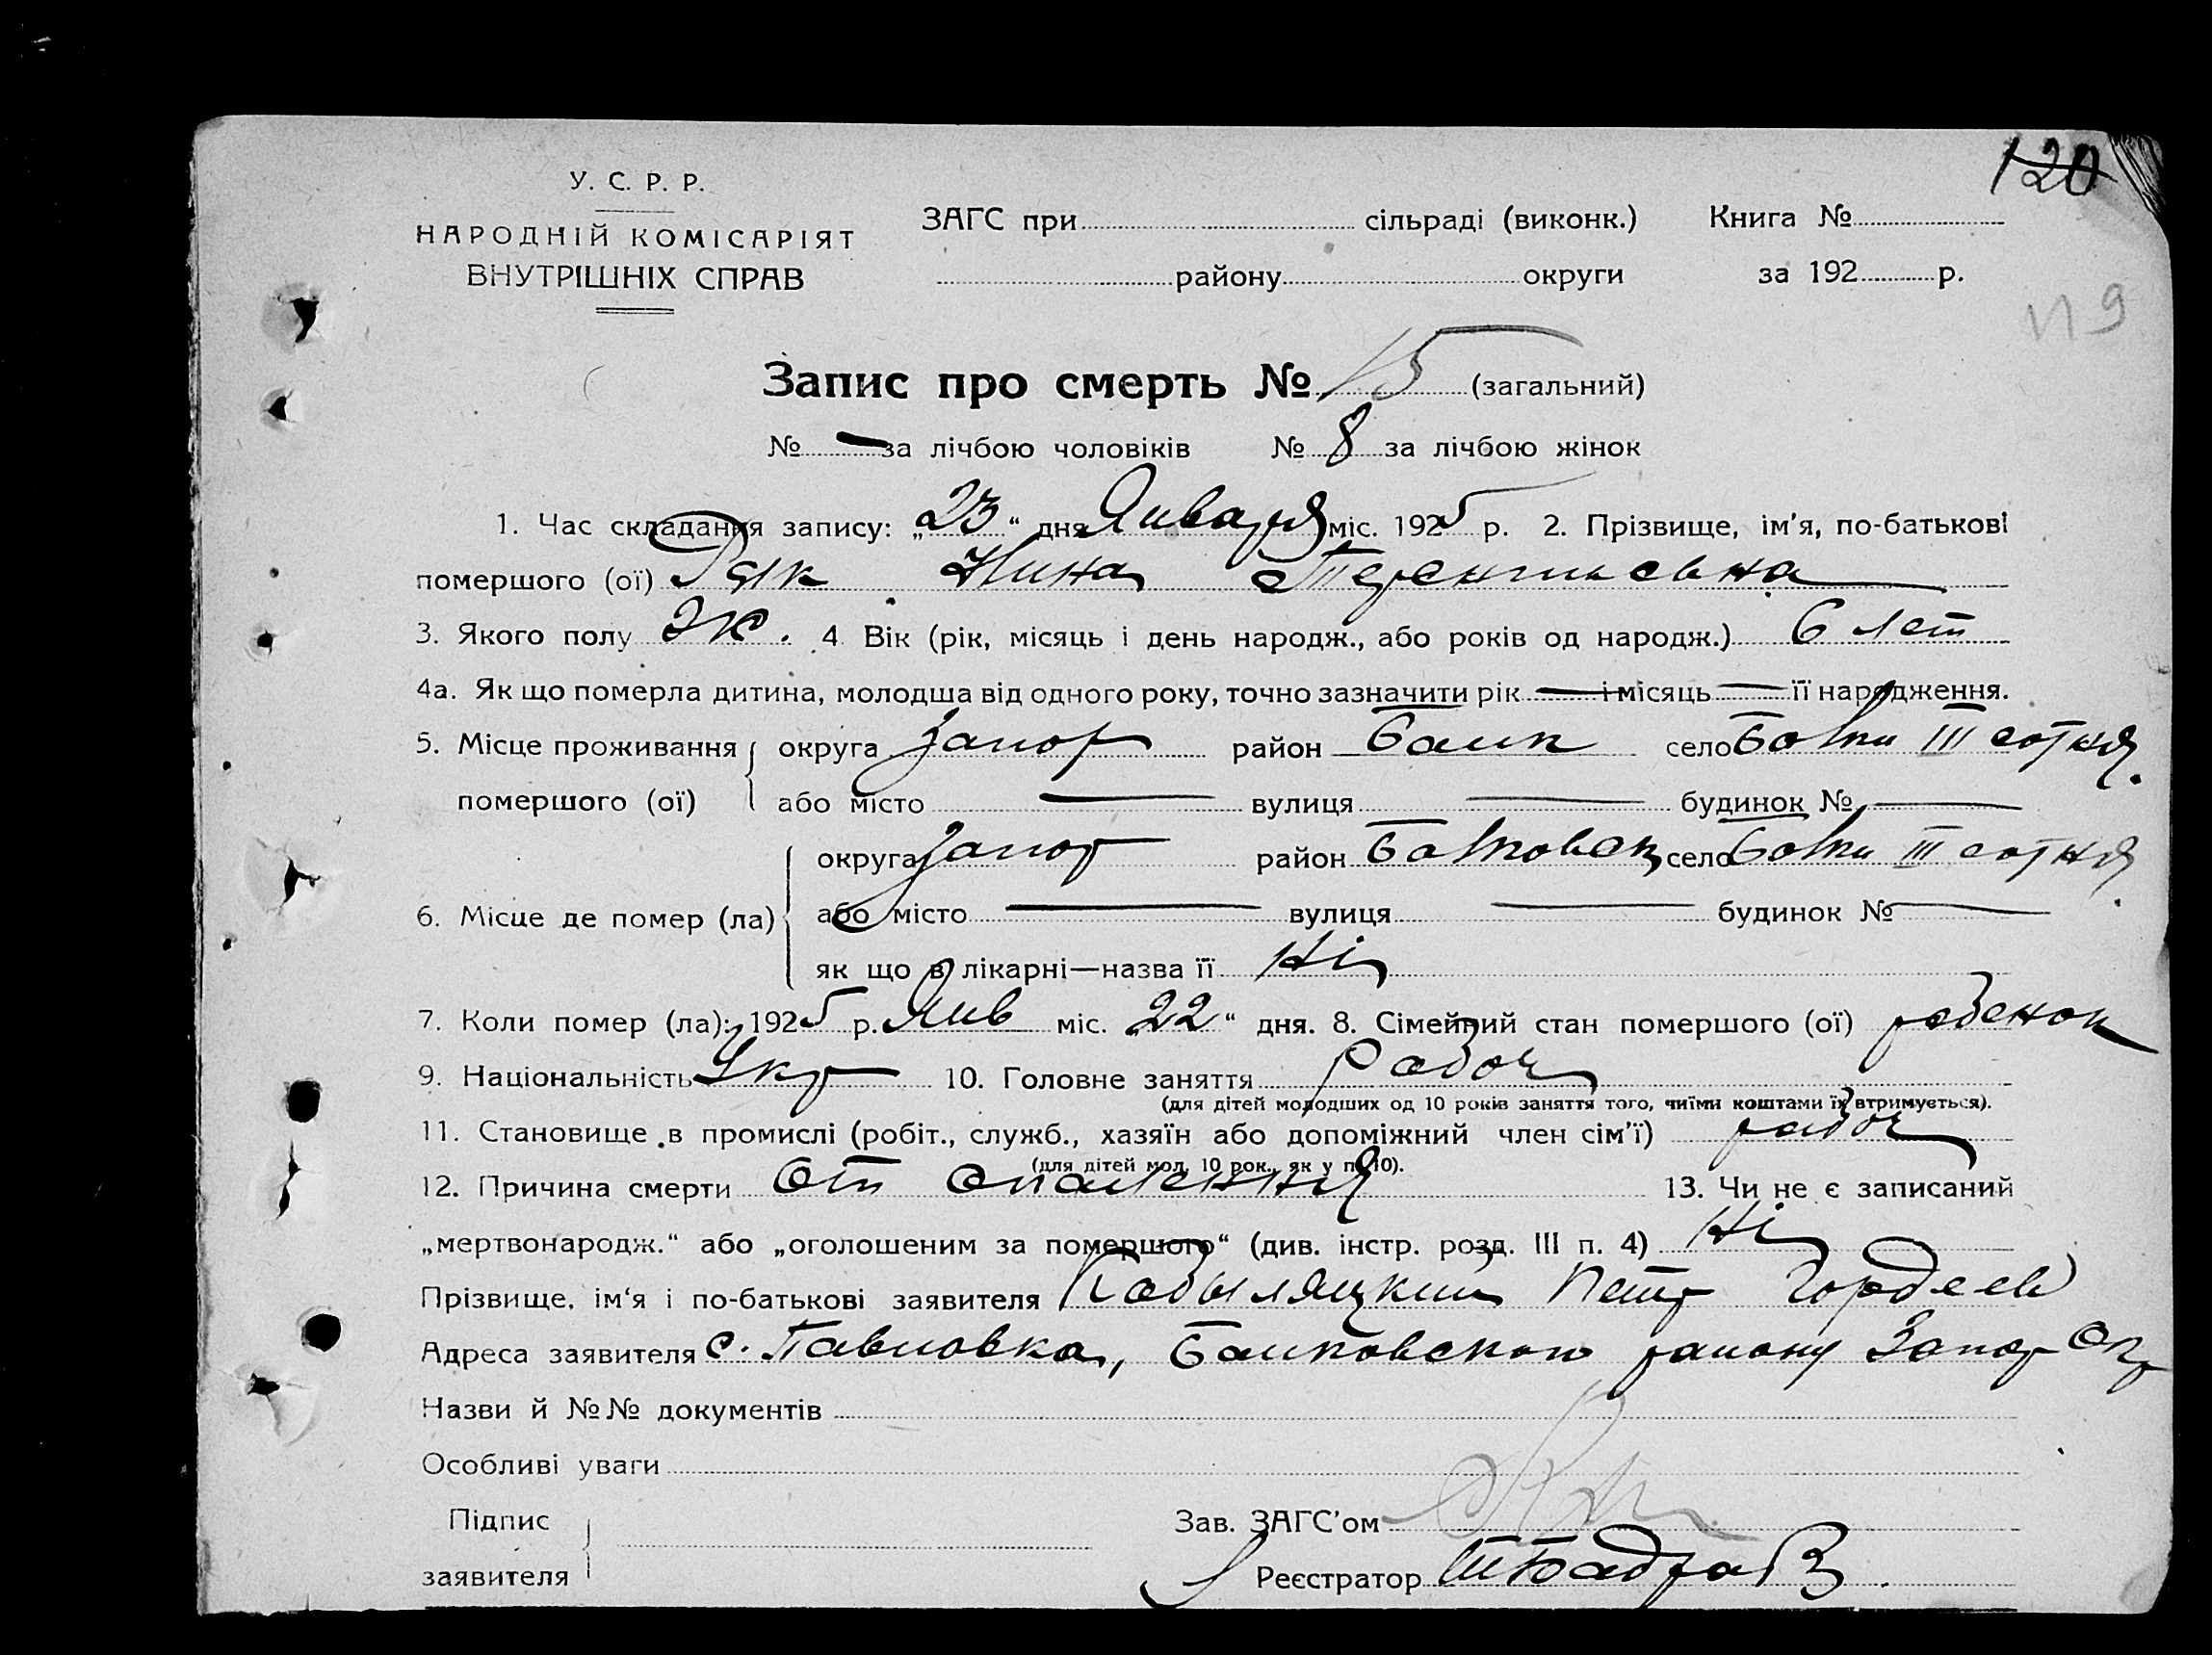 120
У. С. Р. Р.
НАРОДНІЙ КОМІСАРІЯТ
ВНУТРІШНІХ СПРАВ
ЗАГС при сільраді (виконк.) Книга №
району округи за 192 р.
Запис про смерть № 15 (загальний)
№ — за лічбою чоловіків № 8 за лічбою жінок
1. Час складання запису: „23“ дня Января міс. 1925 р. 2. Прізвище, ім'я, по-батькові
помершого (ої) Нина
3. Якого полу ж. 4 Вік (рік, місяць і день народж., або років од народж.) 6 лет
4а. Як що померла дитина, молодша від одного року, точно зазначити рік — і місяць — її народження.
5. Місце проживання округа Запор район село III сотня
помершого (ої) або місто — вулиця — будинок № —
округа Запор район село III сотня
6. Місце де помер (ла) або місто — вулиця — будинок № —
як що в лікарні—назва її Ні
7. Коли помер (ла): 1925 р. Янв міс. „22“ дня. 8. Сімейний стан помершого (ої) ребенок
9. Національність Укр 10. Головне заняття Рабоч
(для дітей молодших од 10 років заняття того, чиїми коштами їх втримується).
11. Становище в промислі (робіт., служб., хазяїн або допоміжний член сім'ї) рабоч
(для дітей мол. 10 рок., як у п. 10).
12. Причина смерти От 13. Чи не є записаний
„мертвонародж.“ або „оголошеним за помершого“ (див. інстр. розд. III п. 4) Ні
Прізвище, ім'я і по-батькові заявителя Кобыляцкий Петр Гордеев
Адреса заявителя с. Павловка, району Запор Окр
Назви й №№ документів
Особливі уваги
Підпис Зав. ЗАГС'ом
заявителя Реєстратор